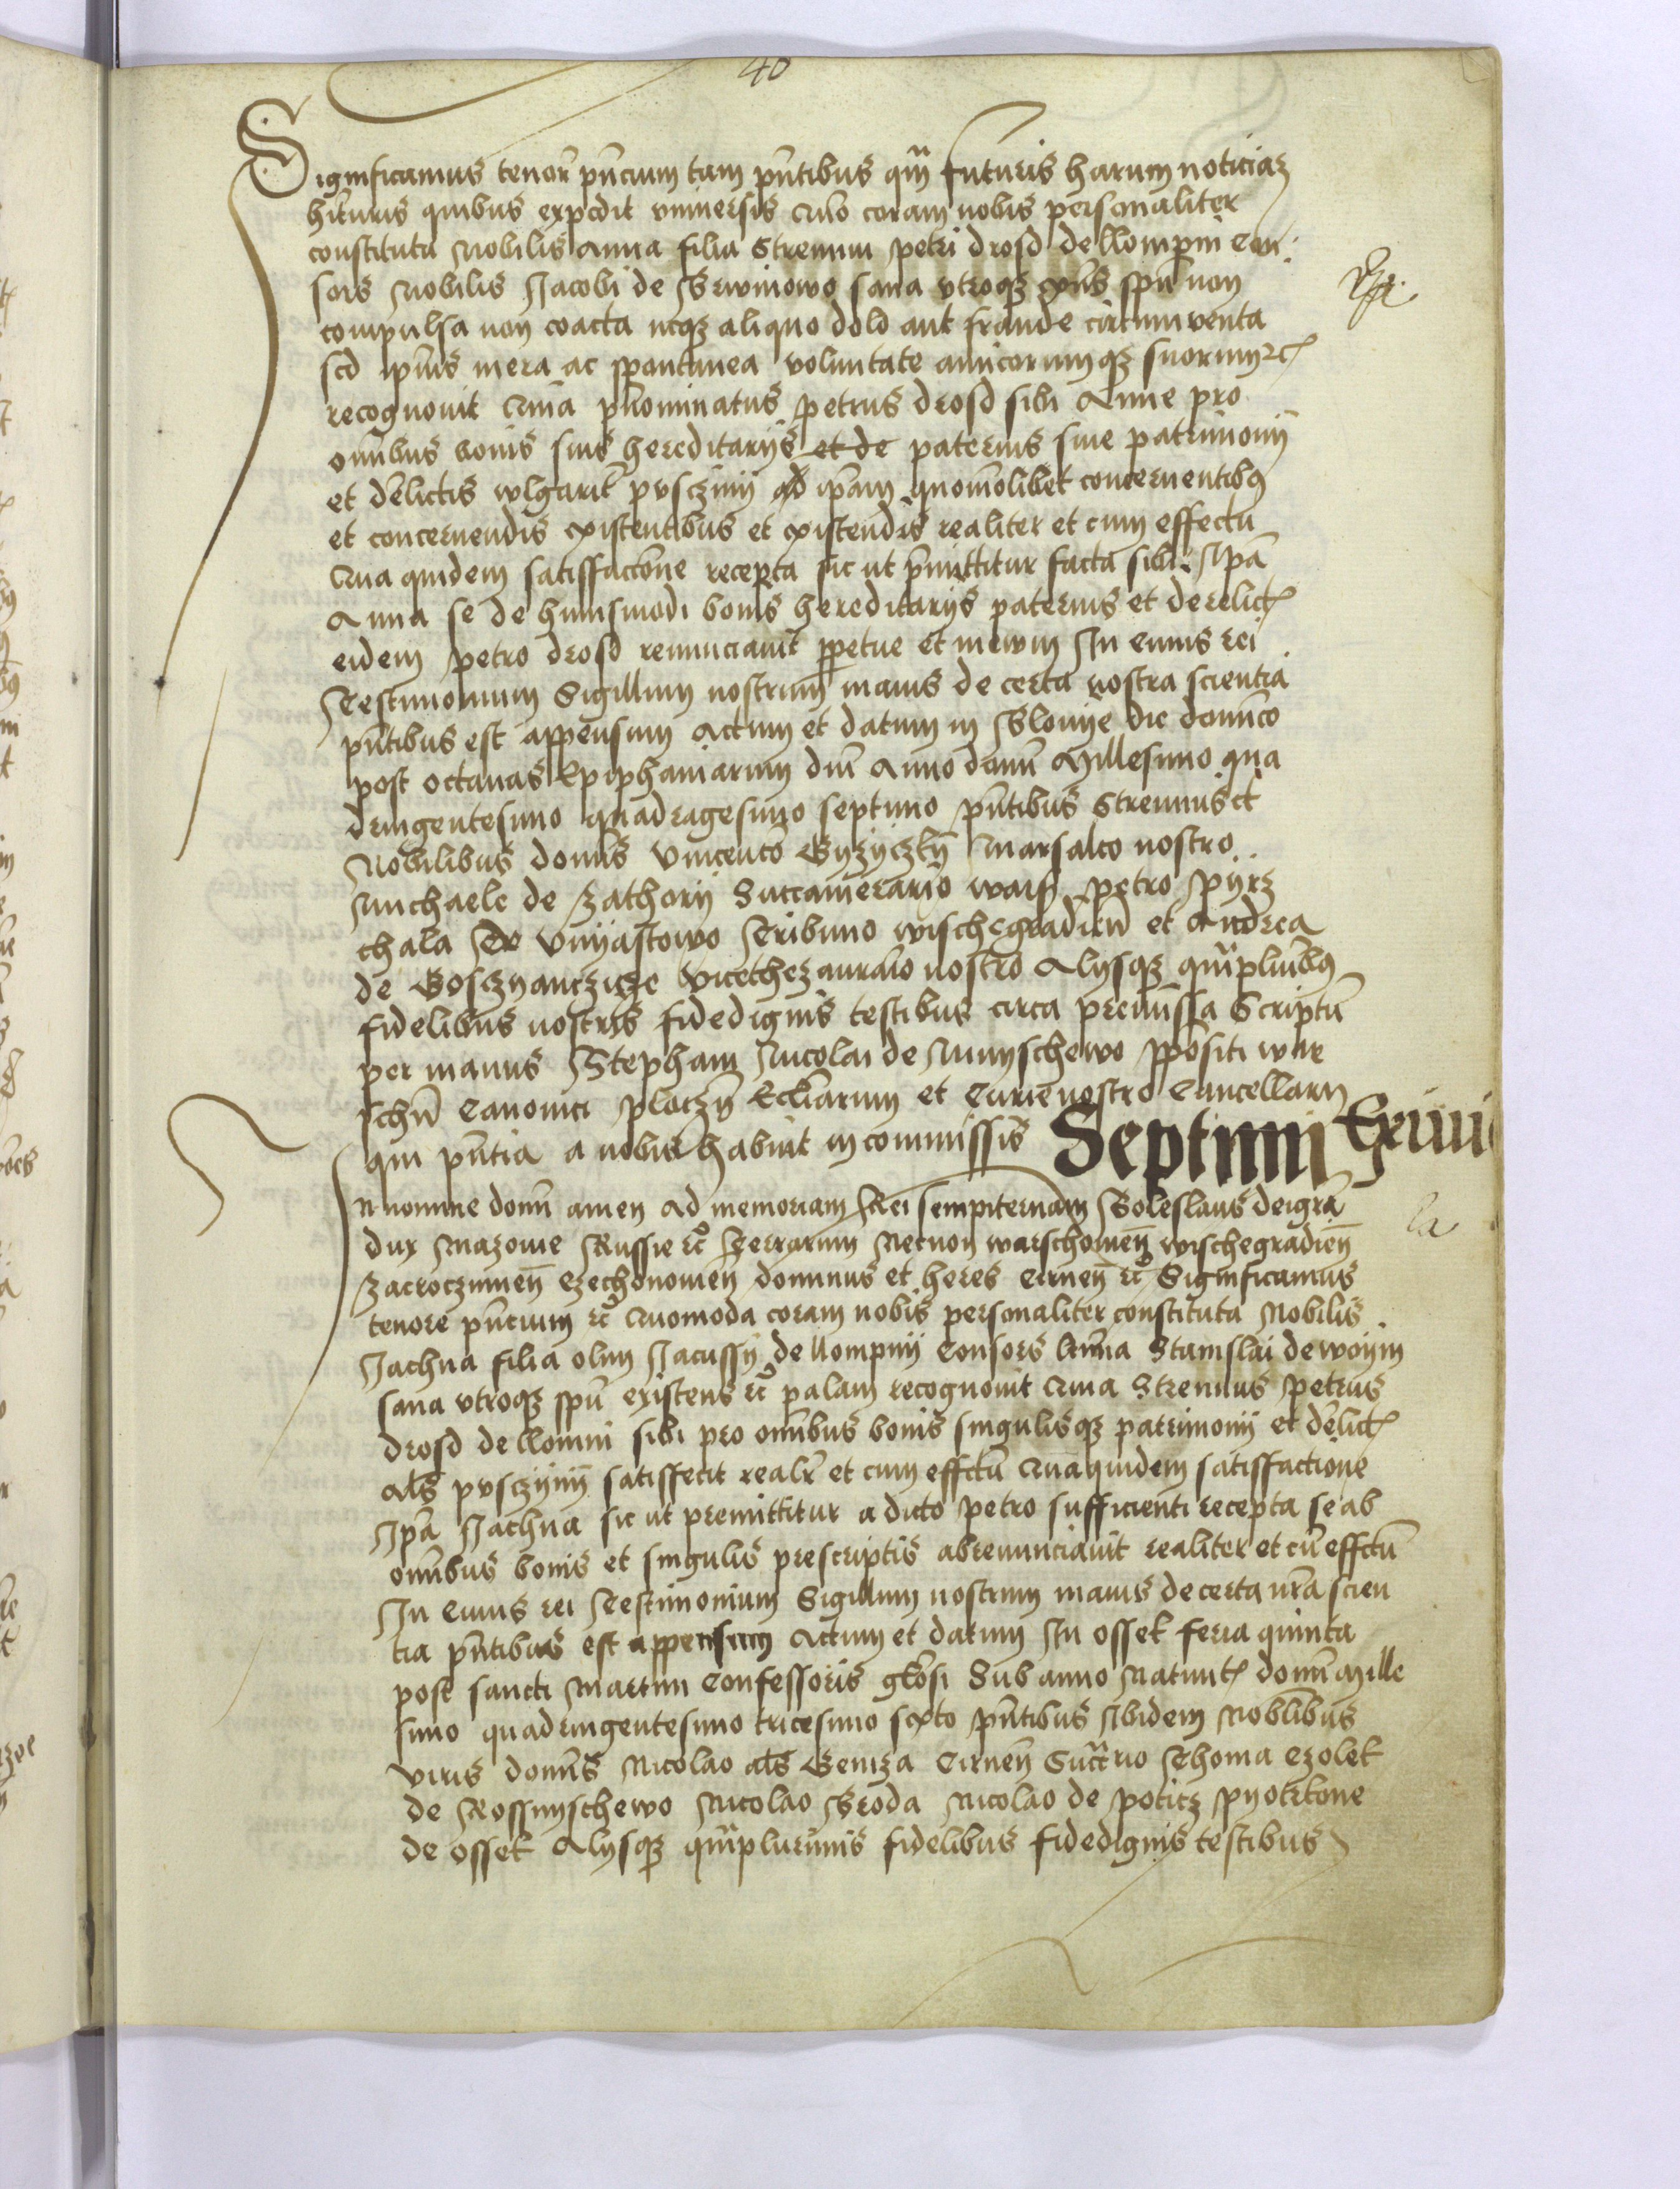 40
Significamus tenore pñcium tam pñtibus qm̃ futuris harum noticiaȝ
hituris quibus expedit vniuersis Quo coram nobis personaliter
constituta Nobilis Anna filia Strenuui petri drosd de llompin Con:
sors Nobilis Jacobi de Brwinowo sana vtroqȝ spũ non
compulsa non coacta neqȝ aliquo dolo aut fraude circumventa
sed mera ac spontanea voluntate amicorumqȝ suorum ⁊c
recognouit Quia pñominatus petrus drosd sibi Anne pro
omibus bonis suis hereditarijs et de paternis siue patrimonij
et delictis wlgarit pusczinij ad ipam quomolibet concernentibꝫ
et concernendis existentibus et existendis realiter et cum effectu
Qua quidem satisffaccone recepta sic ut pmittitur facta sibi Ipa
Anna se de huiusmodi bonis hereditarijs paternis et derelict
eidem petro drosd renunciauit ppetue et in ewm In cuius rei
Testimonium Sigillum nostrum maius de certa nostra scientia
pñtibus est appensum Actum et datum in Blonije die dominco
post octauas Epiphaniarum dni Anno domi Millesimo qua
dringentesimo quadragesimo septimo pñtibus Strennuis et
Nobilibus domis Vincenco Gyzyczky Marsalco nostro
Michaele de Zathorij Succamerario warss petro Pyrz
chala de Vnyastowo Tribuno wischegradien et Andrea
de Gosczyanczicze vicethezaurario nostro Alysqȝ qmpluibꝫ
fidelibus nostris fidedignis testibus circa premissa Scriptu
per manus Stephani Nicolai de Mnyschewo ppositi war
schn Canonici ploczn Ecliarum et Curie nostre Cancellarij
qui pñtia a nobis habuit in commissis Septimi Exiiii
In nomine domi amen Ad memoriam Rei sempiternam Boleslaus dei gra
la
dux Mazouie Russie ⁊c Terrarum Necnon warschouien wischegradien
Zacroczimien Czechonouien dominus et heres Cirnen ⁊c Significamus
tenore pñcium ⁊c Quomoda coram nobis personaliter constituta Nobilis
Jachna filia olim Jacussij de llompnij Consors Stanislai de woijm
sana vtroqȝ spũ existens ⁊c palam recognouit Quia Strenuus petrus
drosd de llomni sibi pro omibus bonis singulisqȝ patrimonij et delict
als pusczijnij satisfecit realr et cum effctu Qua quidem satisffactione
Ipa Jachna sic ut premittitur a dicto petro sufficienti recepta se ab
omibus bonis et singulis prescriptis abrenunciauit realiter et cu effctu
In Cuius rei Testimonium Sigillum nostrum maius de certa nra scien
tia pñtibus est appensum Actum et datum In osset feria quinta
post sancti Martini Confessoris glosi Sub anno Natiuit domi Mille
simo quadringentesimo tricesimo sexto pñtibus Ibidem Noblibus
viris domis Nicolao als Geniza Cirnen Thoma Czolek
de Rossinijschewo Nicolao Broda Nicolao de poticz Pyotrkone
de osset Alysqȝ qmplurimis fidelibus fidedignis testibus